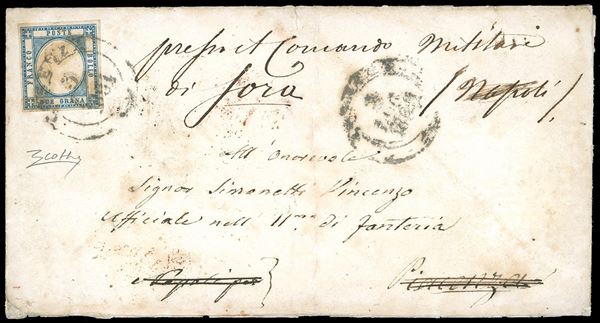 FRANCO POSTE BOLLO
DUE GRANA
presso il Comando Militare
di Sora (Napoli)
All' Onorevole
Signor Simonetti Vincenzo
Ufficiale nell' 11mo di fanteria
Napoli per
Piacenza